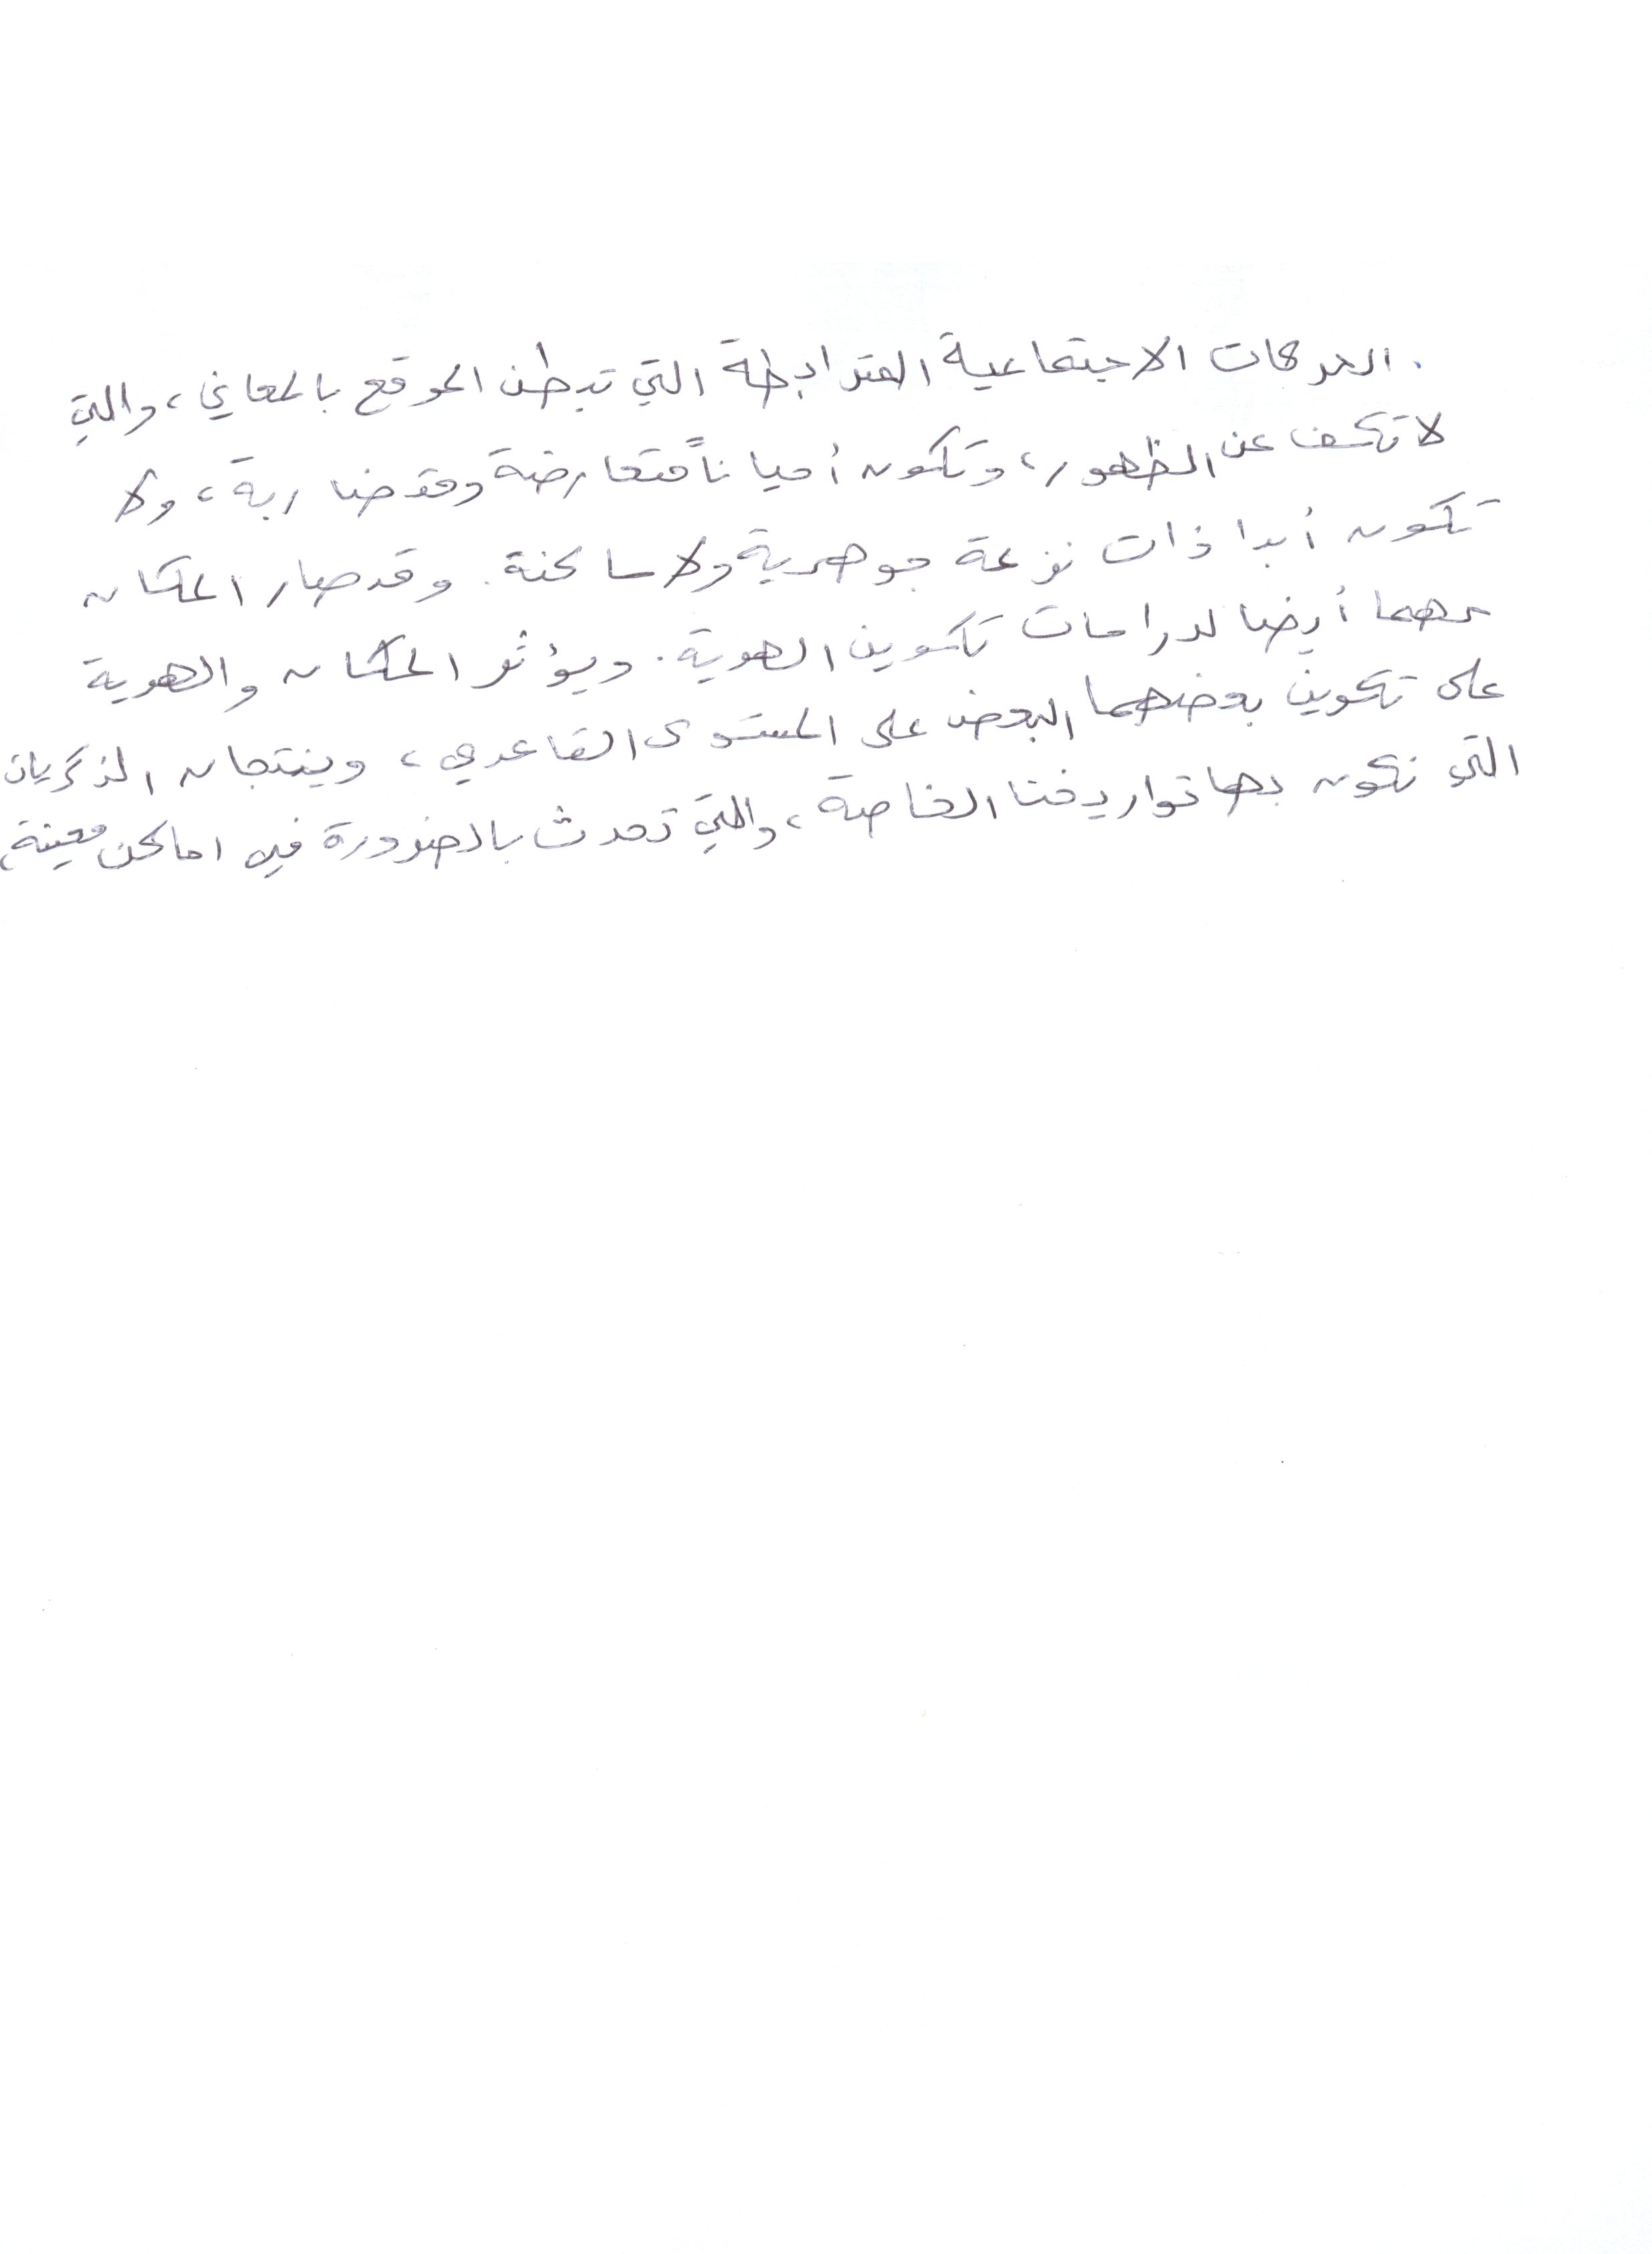 . الحركات الاجتماعية المترابطة التي تبطن الموقع بالمعاني، والتي
لا تكف عن الظهور، وتكون أحياناً متعارضة ومتضاربة، ولا
تكون أبدا ذات نزعة جوهرية ولا ساكنة. وقد صار المكان
مهما أيضا لدراسات تكوين الهوية. ويؤثر المكان والهوية
على تكوين بعضهما البعض على المستوى القاعدي، وينتجان الذكريات
التي نكون بها تواريخنا الخاصة، والتي تحدث بالضرورة في اماكن معينة،